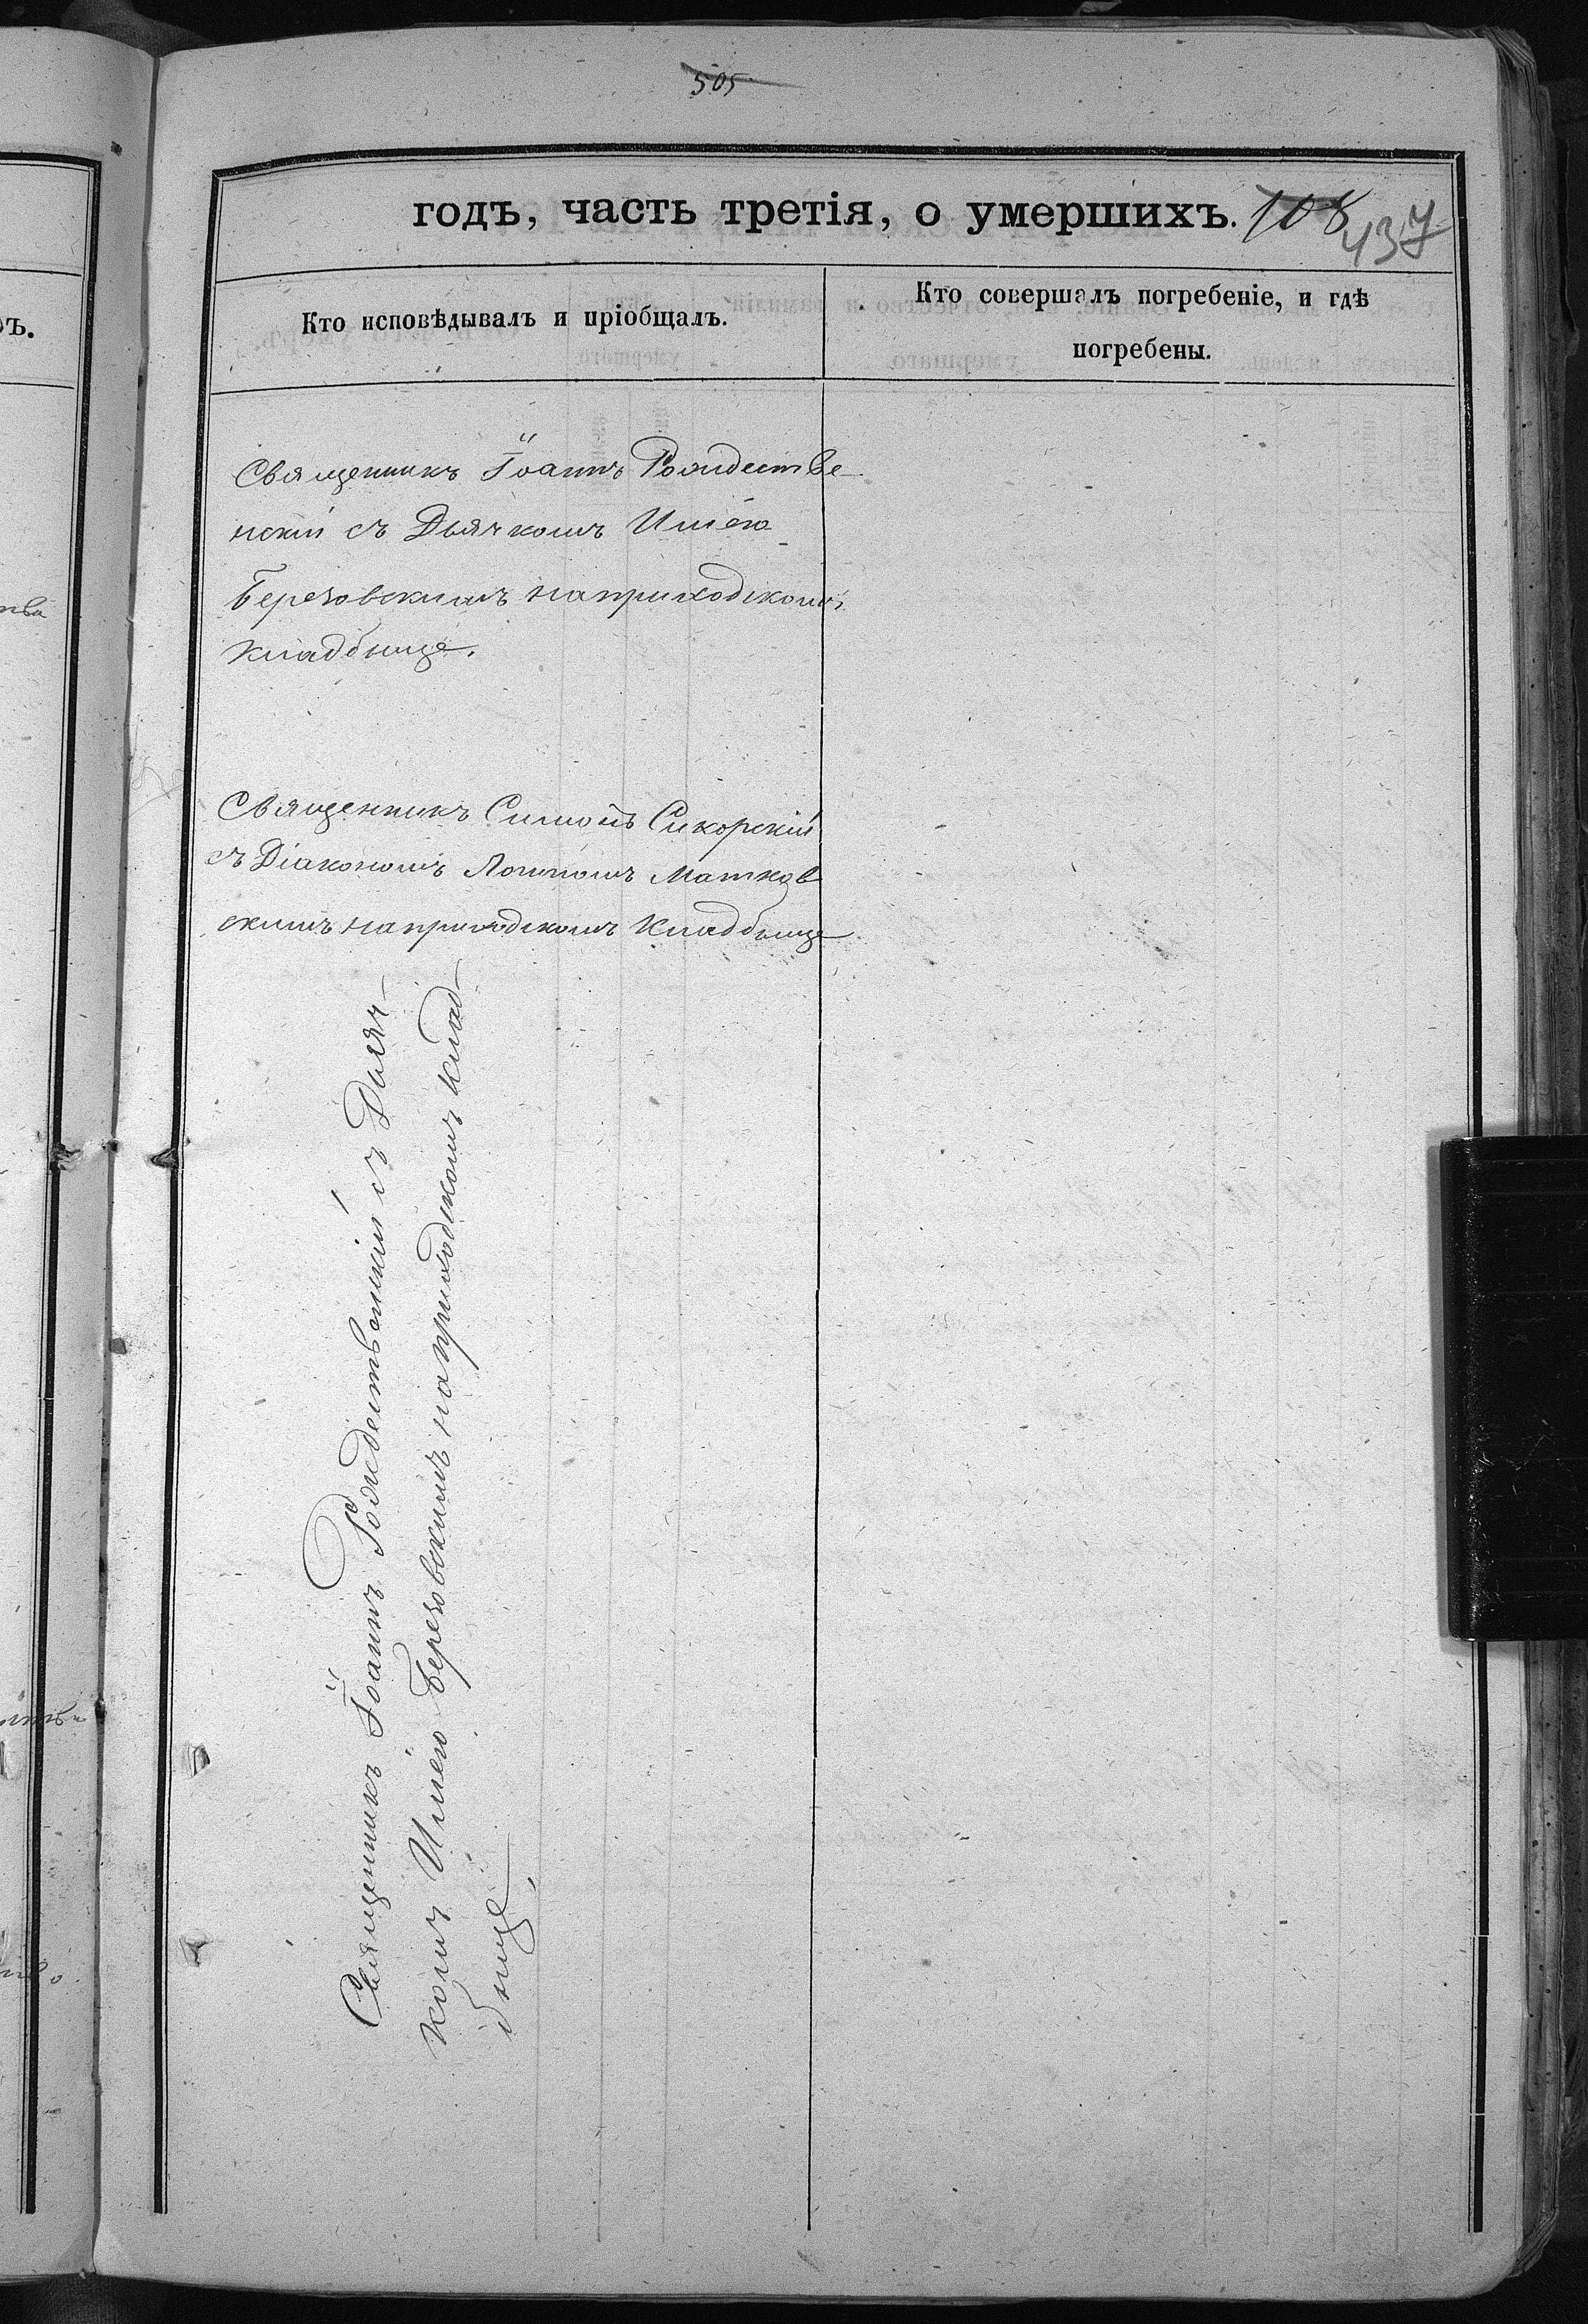 505
годъ, часть третія, о умершихъ. 108
437
Кто исповѣдывалъ и пріобщалъ.
Кто совершалъ погребеніе, и гдѣ
погребены.
Священникъ Іоаннъ Рождестве-
нскій съ Дьячкомъ Иліею
Березовскимъ на приходскомъ
кладбище.
Священникъ Симонъ Сикорскій
съ Діакономъ Матков
скимъ на приходскомъ кладбище
Священникъ Іоаннъ Рождественскій съ Дьяч-
комъ Иліею Березовскимъ на приходскомъ клад-
бище,
ъ.